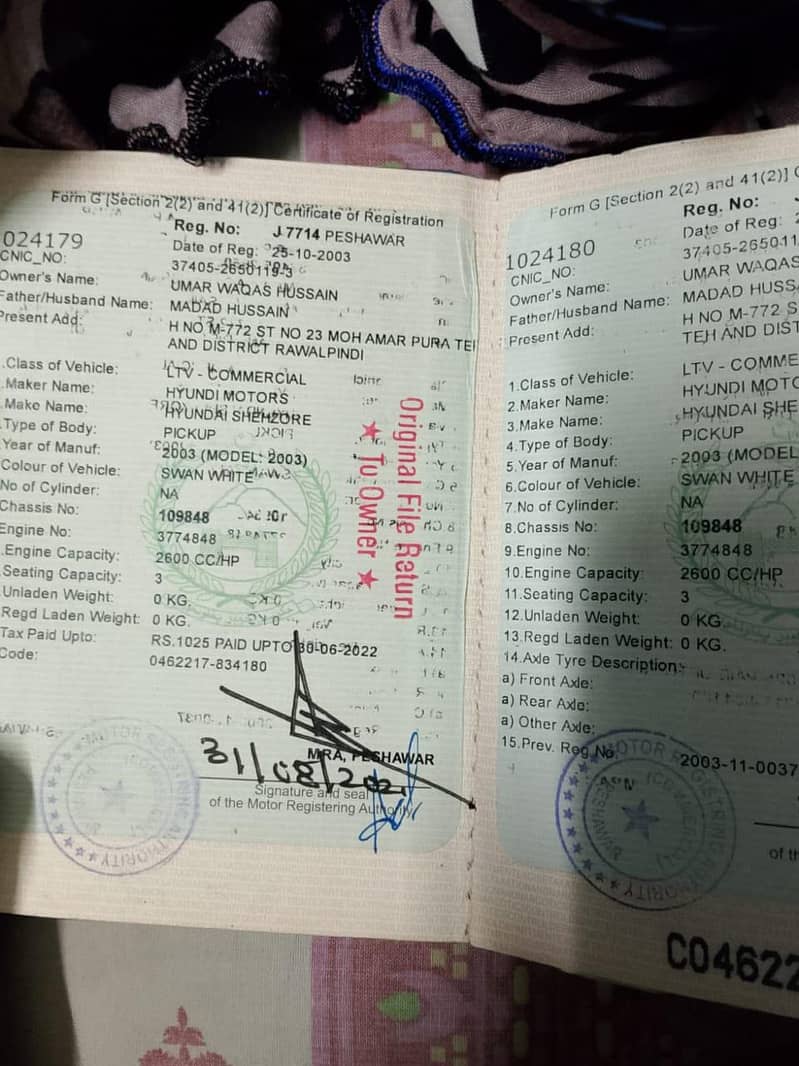 Form G [Section 2(2) and 41(2)] Certificate of Registration
024179
Reg. No: J 7714 PESHAWAR
Date of Reg: 25-10-2003
CNIC_NO: 37405-2650119-3
Owner's Name: UMAR WAQAS HUSSAIN
Father/Husband Name: MADAD HUSSAIN
Present Add: H NO M-772 ST NO 23 MOH AMAR PURA TEH
AND DISTRICT RAWALPINDI
.Class of Vehicle: LTV - COMMERCIAL
.Maker Name: HYUNDI MOTORS
.Make Name: HYUNDAI SHEHZORE
.Type of Body: PICKUP
.Year of Manuf: 2003 (MODEL: 2003)
Colour of Vehicle: SWAN WHITE
No of Cylinder: NA
Chassis No: 109848
Engine No: 3774848
.Engine Capacity: 2600 CC/HP
.Seating Capacity: 3
Unladen Weight: 0 KG.
Regd Laden Weight: 0 KG.
Tax Paid Upto: RS.1025 PAID UPTO 30-06-2022
Code: 0462217-834180
Original File Return
★ To Owner ★
MRA, PESHAWAR
31/08/2021
Signature and seal
of the Motor Registering Authority
MOTOR REGISTRING AUTHORITY
Form G [Section 2(2) and 41(2)] C
1024180
Reg. No:
Date of Reg: 2
CNIC_NO: 37405-265011
Owner's Name: UMAR WAQAS
Father/Husband Name: MADAD HUSSA
Present Add: H NO M-772 S
TEH AND DIST
1.Class of Vehicle: LTV - COMME
2.Maker Name: HYUNDI MOTO
3.Make Name: HYUNDAI SHE
4.Type of Body: PICKUP
5.Year of Manuf: 2003 (MODEL
6.Colour of Vehicle: SWAN WHITE
7.No of Cylinder: NA
8.Chassis No: 109848
9.Engine No: 3774848
10.Engine Capacity: 2600 CC/HP
11.Seating Capacity: 3
12.Unladen Weight: 0 KG.
13.Regd Laden Weight: 0 KG.
14.Axle Tyre Description:
a) Front Axle:
a) Rear Axle:
a) Other Axle:
15.Prev. Reg No. 2003-11-0037
MOTOR REGISTRING AUTHORITY
of th
C04622